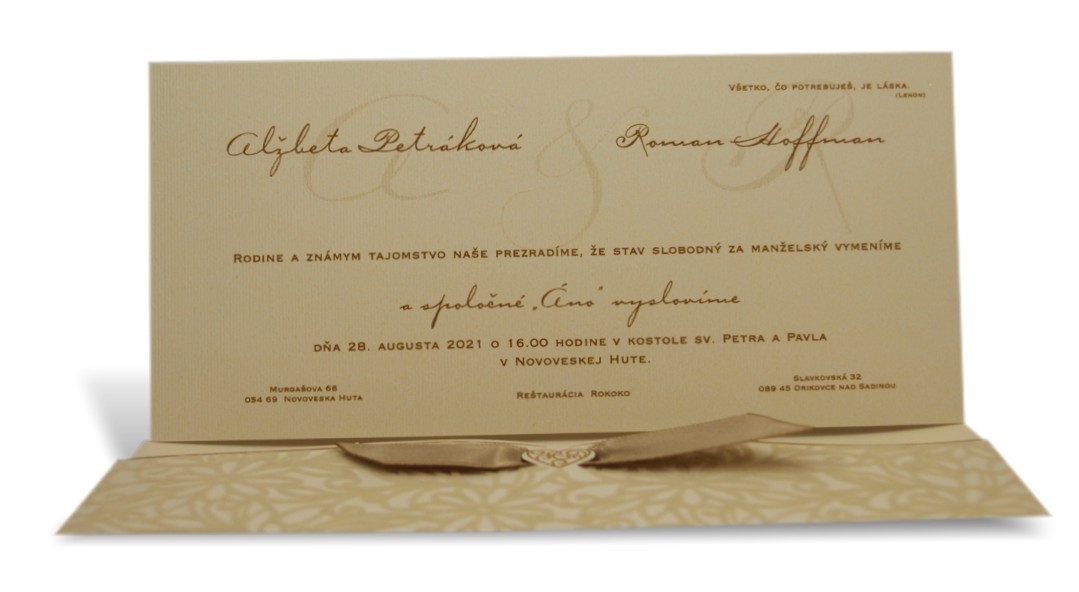 Všetko, čo potrebuješ, je láska.
(Lenon)
A & R
Alžbeta Petráková Roman Hoffman
Rodine a známym tajomstvo naše prezradíme, že stav slobodný za manželský vymeníme
a spoločné „Áno“ vyslovíme
dňa 28. augusta 2021 o 16.00 hodine v kostole sv. Petra a Pavla
v Novoveskej Hute.
Murgašova 68
054 69 Novoveska Huta
Reštaurácia Rokoko
Slavkovská 32
089 45 Orikovce nad Sadinou